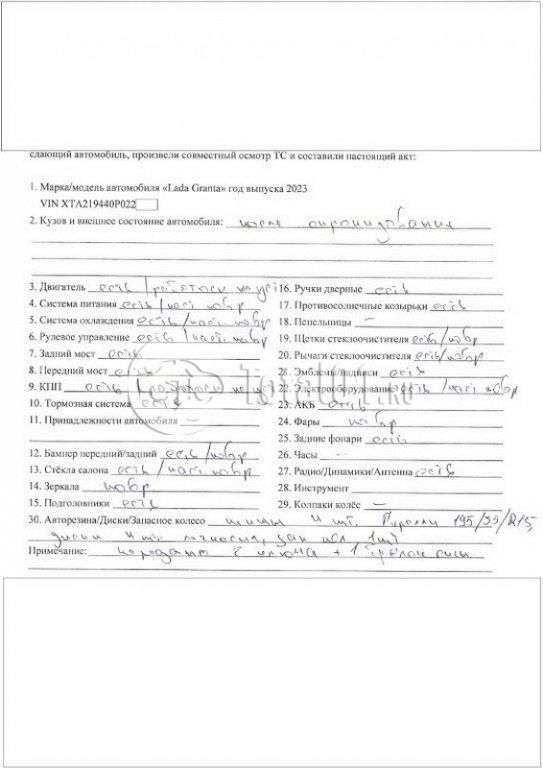 сдающий автомобиль, произвели совместный осмотр ТС и составили настоящий акт:
1. Марка/модель автомобиля «Lada Granta» год выпуска 2023
VIN XTA219440P022
2. Кузов и внешнее состояние автомобиля: после опрокидывания
3. Двигатель есть / работоск не уст
4. Система питания есть / част повр
5. Система охлаждения есть / част повр
6. Рулевое управление есть / част повр
7. Задний мост есть
8. Передний мост есть
9. КПП есть / работоск не
10. Тормозная система есть
11. Принадлежности автомобиля –
12. Бампер передний/задний есть / повр
13. Стёкла салона есть / част повр
14. Зеркала повр
15. Подголовники есть
16. Ручки дверные есть
17. Противосолнечные козырьки есть
18. Пепельницы –
19. Щетки стеклоочистителя есть/повр
20. Рычаги стеклоочистителя есть/повр
21. Эмблемы/надписи есть
22. Электрооборудование есть / част повр
23. АКБ есть
24. Фары повр
25. Задние фонари есть
26. Часы –
27. Радио/Динамики/Антенна есть
28. Инструмент –
29. Колпаки колёс –
30. Авторезина/Диски/Запасное колесо шины 4 шт. Пирелли 195/55/R15,
диски 4 шт. зап кол 1шт
Примечание: передано 2 ключа + 1 брелок сиги